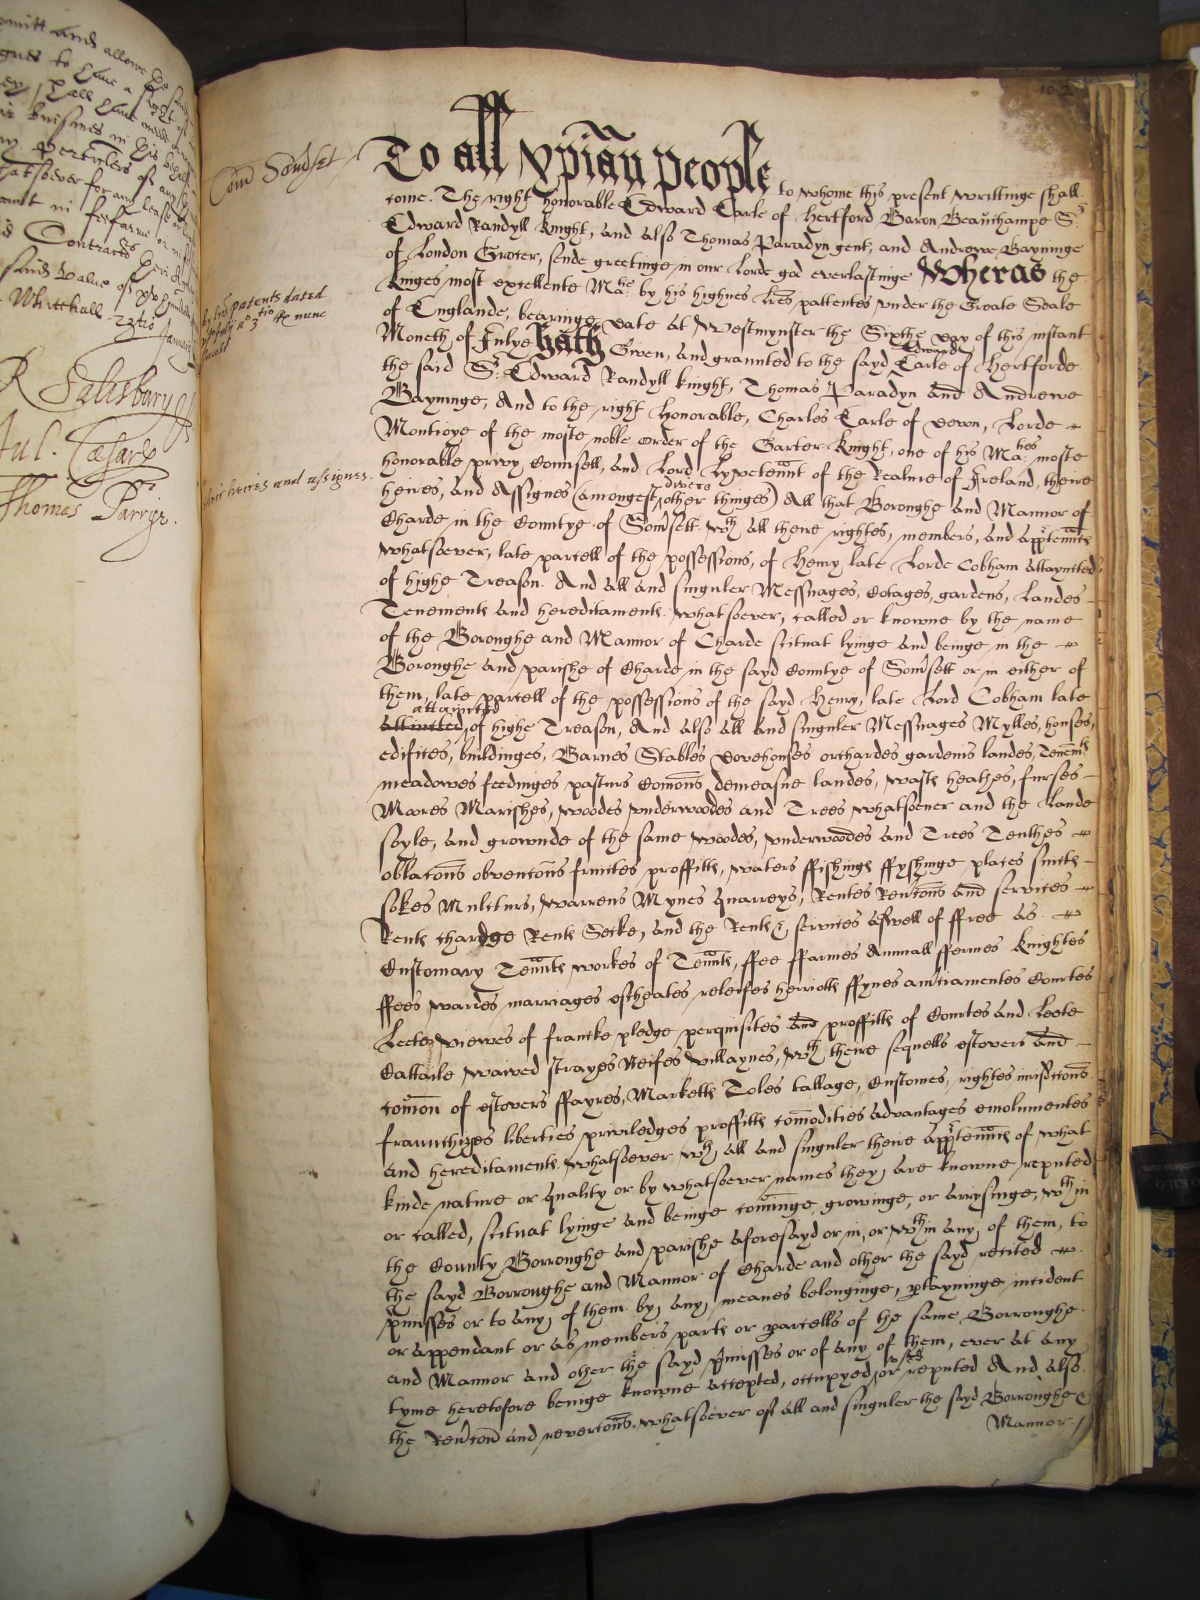 omitt and allowe the said
gnes to have a
ey shall have
ir busines in his behalf
perticulers of any
atsoever for any lease
ant in feefarme or
d Contracts
said value of
Whitehall 22tio January
R Salisbury
Jul. Cæsar
Thomas Parry.
Com Somset
by lres patents dated
6 July ao 3tio Rr nunc
Jacobi
their heires and assignes.
To all xpian people to whome this present writtinge shall
come. The right honorable Edward Earle of Hertford Baron Beauchampe Sr
Edward Randyll knight, and also Thomas Paradyn gent, and Andrewe Bayninge
of London Grocer, sende greetinge in our Lorde god everlastinge Wheras the
kinges most excellente Matie by his highnes lres pattentes under the Greate Seale
of Englande, bearinge date at Westmynster the Sixthe day of this instant
Moneth of Julye hath Given, and graunted to the sayd Edward Earle of Hertforde
the said Sr Edward Randyll knight, Thomas Paradyn and Andrewe
Bayninge, And to the right Honorable, Charles Earle of Devon, Lorde
Montioye of the moste noble order of the Garter knight, one of his Maties moste
honorable privy Counsell, and Lord Lyvetennt of the Realme of Ireland, theire
heires, and Assignes (amongest divers other thinges) All that Boroughe and Mannor of
Charde in the Countye of Somsett wth all there rightes, members, and apptennce
whatsoever, late parcell of the possessions, of Henry late Lorde Cobham attaynted
of highe Treason. And all and singuler Messuages, Cotages, gardens, Landes
Tenemente and hereditamente whatsoever, called or knowne by the name
of the Boroughe and Mannor of Charde scituat lyinge and beinge in the
Boroughe and parishe of Charde in the sayd Countye of Somsett or in either of
them, late parcell of the possessions of the sayd Henry, late Lord Cobham late
attainted of highe Treason, And also all and singuler Messuages Mylles, houses,
edifices, buildinges, Barnes Stables dovehouses orchardes gardenis landes, Tenemte
meadowes feedinges pasturs Comons demeasne landes, waste heathes, furses
Mores Marishes, woodes underwoodes and Trees whatsoever and the Lande
soyle, and grownde of the same woodes, underwoodes and Trees Tenthes
oblacons obvencons fruictes proffitte, waters ffishinge ffyshinge places suite
sokes Multurs, warrens Mynes quarreys, Rentes Revcons and services
Rente chardge Rente Secke, and the Rente & services aswell of ffree as
Customary Tennte workes of Tennte, ffee ffarmes Annuall ffermes knightes
ffees wardes marriages escheates releifes heriotte ffynes amciamentes Courtes
Leete viewes of francke pledge perquisites and proffitte of Courtes and Leete
Cattaile waived strayes Neifes villaynes, wth theire sequells estovers and
comon of estovers ffayres, Markette Toles tallage, Customes, rightes iurisdicons
fraunchizes liberties priviledges proffitte comodities advantages emolumentes
and hereditamente whatsoever wth all and singuler theire apptennce of what
kinde nature or quality or by whatsoever names they are knowne reputed
or called, scituat lyinge and beinge cominge, growinge, or arrysinge, wthin
the County Borroughe and parishe aforesayd or in, or wthin any of them, to
the sayd Borroughe and Mannor of Charde and other the sayd recited
pmisses or to any of them by any meanes belonginge, ptayninge incident
or appendant or as members parte or parcells of the same Borroughe
and Mannor and other the sayd pmisses or of any of them, ever at any
tyme heretofore beinge knowne accepted, occupyed, used or reputed And also
the Revcon and revercons whatsoever of all and singuler the sayd Borroughe &
Mannor